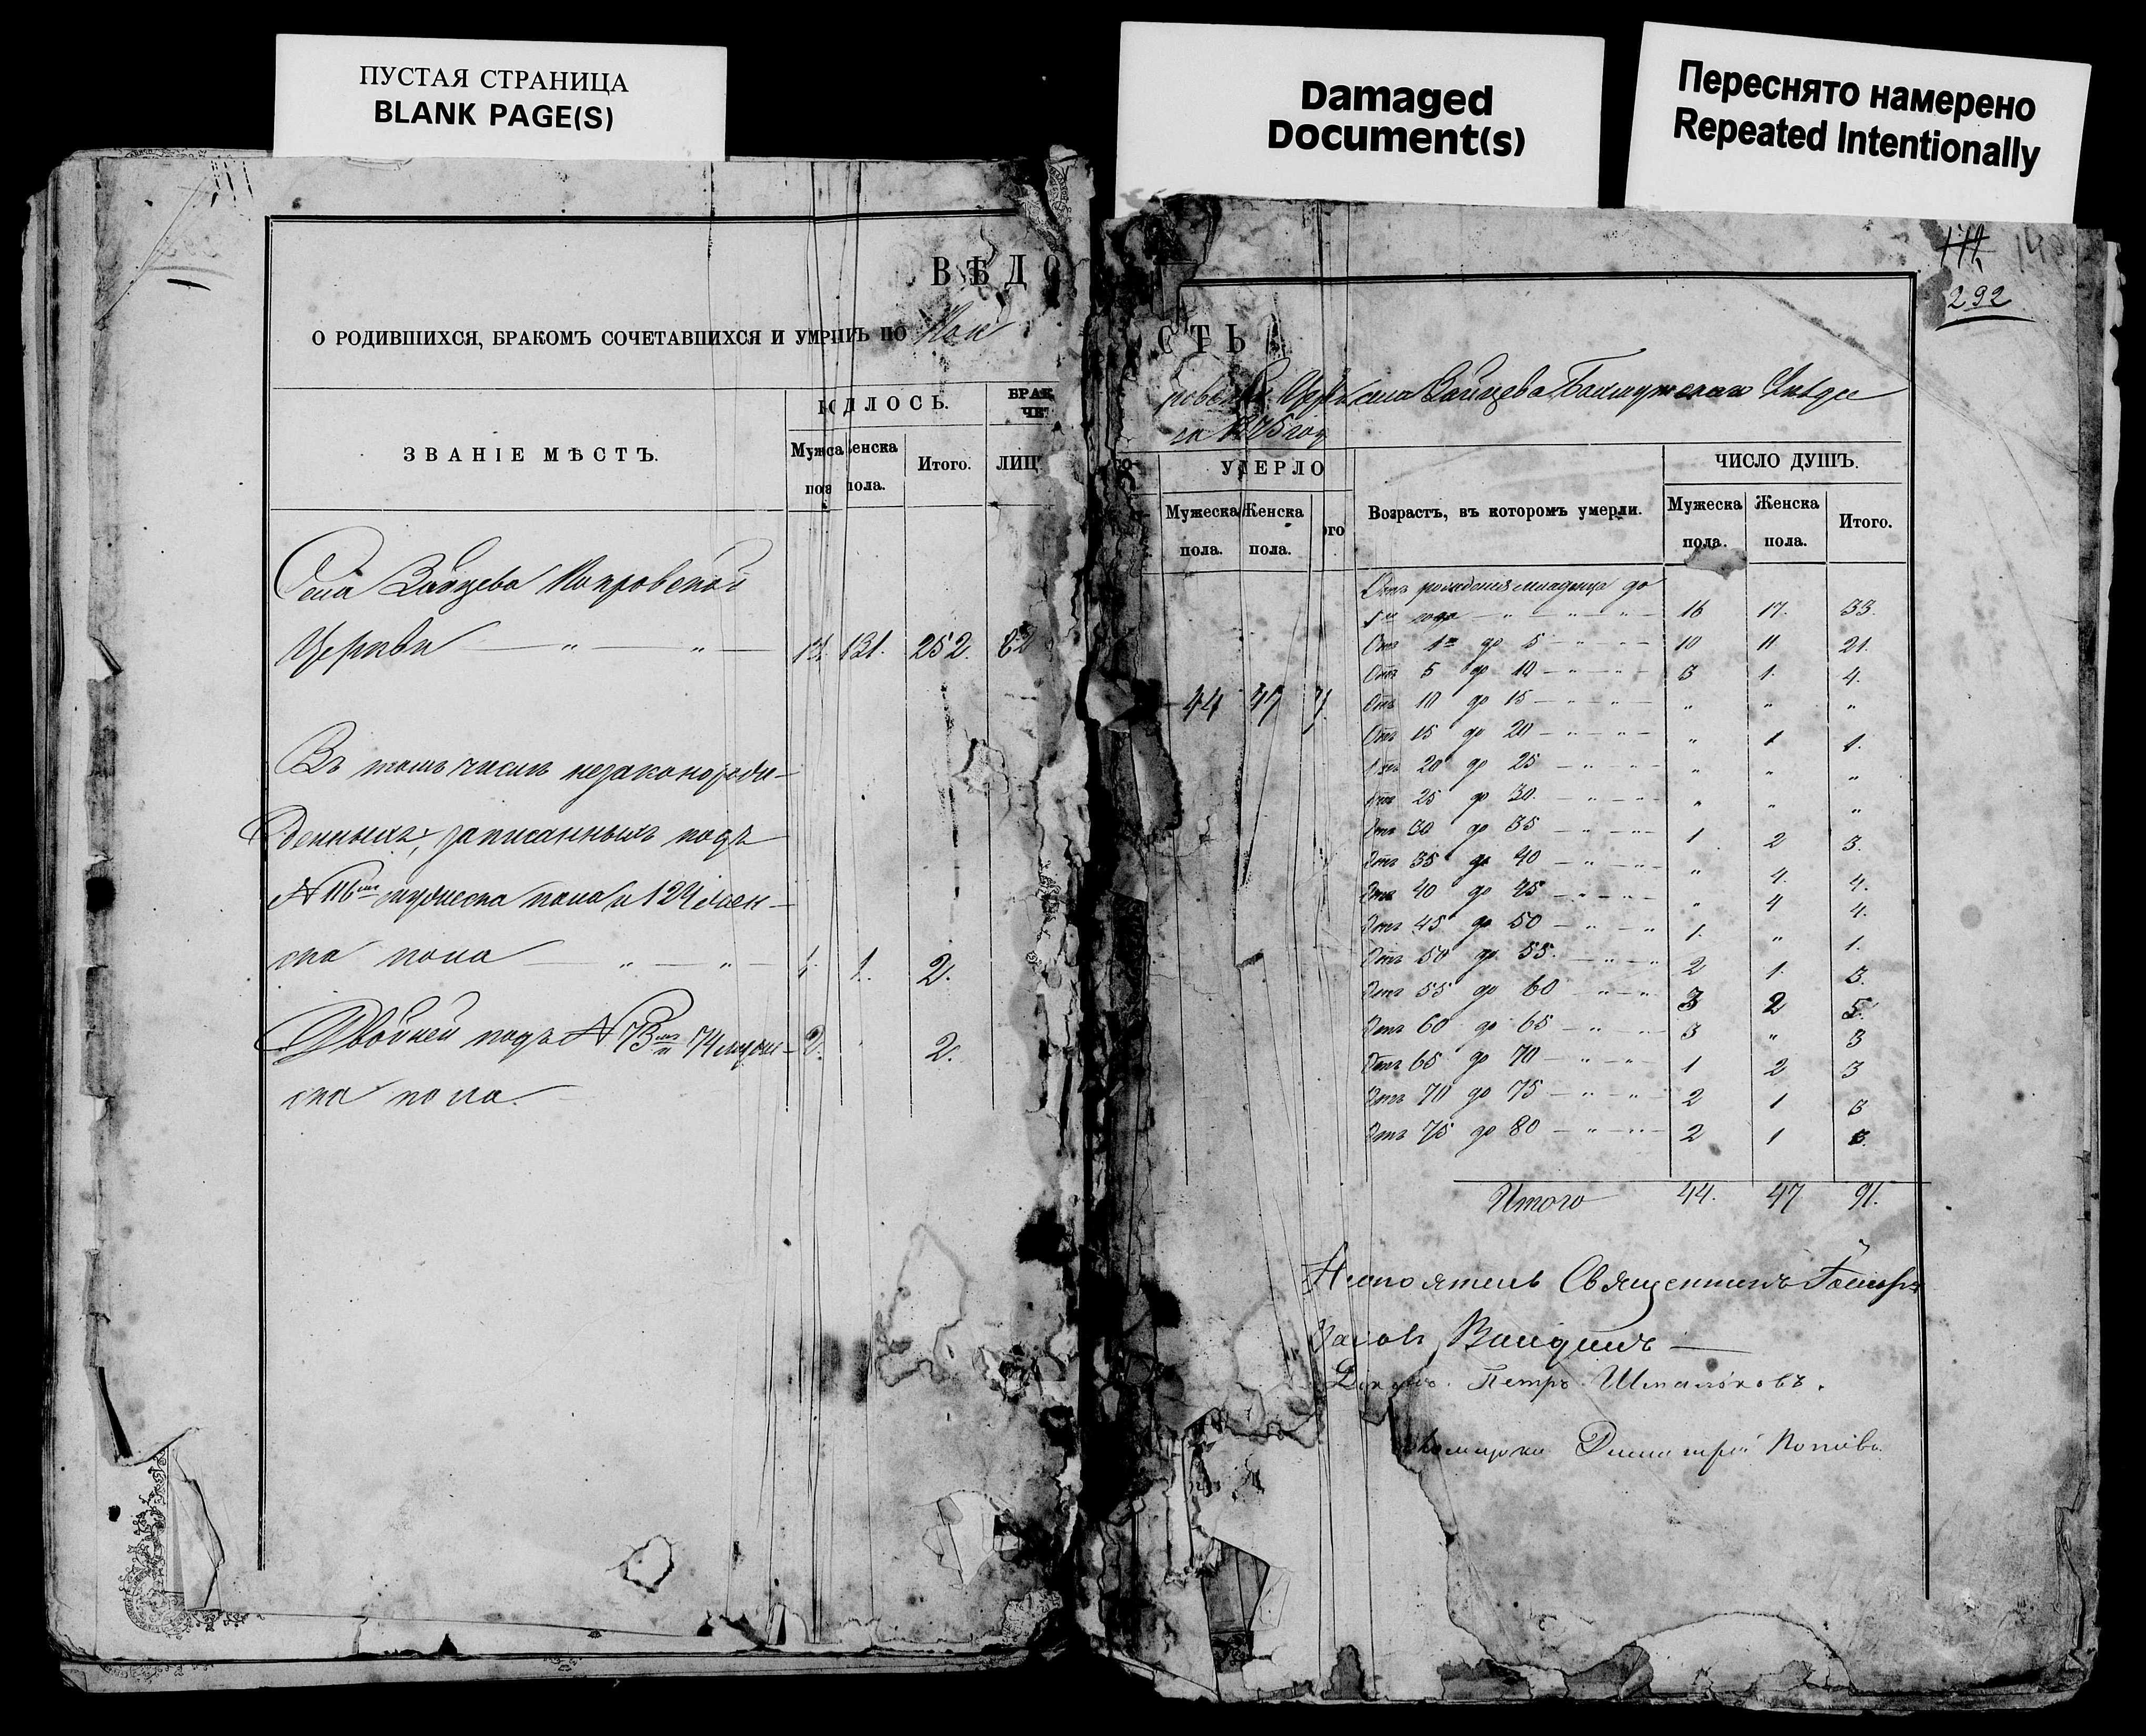 ПУСТАЯ СТРАНИЦА
BLANK PAGE(S)
Damaged
Document(s)
Переснято намерено
Repeated Intentionally
292
ВѢДО
О РОДИВШИХСЯ, БРАКОМЪ СОЧЕТАВШИХСЯ И ПО Пок
ЗВАНІЕ МѢСТЪ.
ДЛОСЬ.
БРАК
ЧЕ
Мужска
пол
енска
пола.
Итого.
ЛИЦ
Села Зайцева Покровской
Церкви — " — " — 131. 252. 62
Въ томъ числѣ незаконорож-
денныхъ, записанныхъ подъ
N 116мъ мужеска пола и 124 жен-
ска пола — " — " — 1. 1. 2.
Двойней подъ N 73мъ и 74 муже- 2. 2.
ска пола.
СТЬ
ровской Церкви села Зайцева, Бахмутскаго Уѣзда
за 1875 год
УМЕРЛО
Мужеска
пола.
Женска
пола.
ого
Возрастъ, въ которомъ умерли.
ЧИСЛО ДУШЪ.
Мужеска
пола.
Женска
пола.
Итого.
44 47
Отъ рожденія младенца до
1го года — " — " — 16 17. 33.
Отъ 1го до 5 — " — " — 10 11 21.
Отъ 5 до 10 — " — " — 3 1. 4.
Отъ 10 до 15 — " — " — " " "
Отъ 15 до 20 — " — " — " 1 1.
Отъ 20 до 25 — " — " — " " "
Отъ 25 до 30. — " — " — " " "
Отъ 30 до 35 — " — " — 1 2 3.
Отъ 35 до 40 — " — " — " 4. 4.
Отъ 40 до 45 — " — " — " 4 4.
Отъ 45 до 50 — " — " 1. " 1.
Отъ 50 до 55. — " — " 2 1. 3.
Отъ 55 до 60 — " — " 3 2 5.
Отъ 60 до 65 — " — " 3 " 3
Отъ 65 до 70 — " — " 1 2 3
Отъ 70 до 75 — " — " — 2 1 3
Отъ 75 до 80 — " — " — 2 1 3.
Итого 44. 47 91.
Настоятель Священникъ
Іаковъ
Діаконъ Петръ Шпаковъ.
Димитрій Поповъ